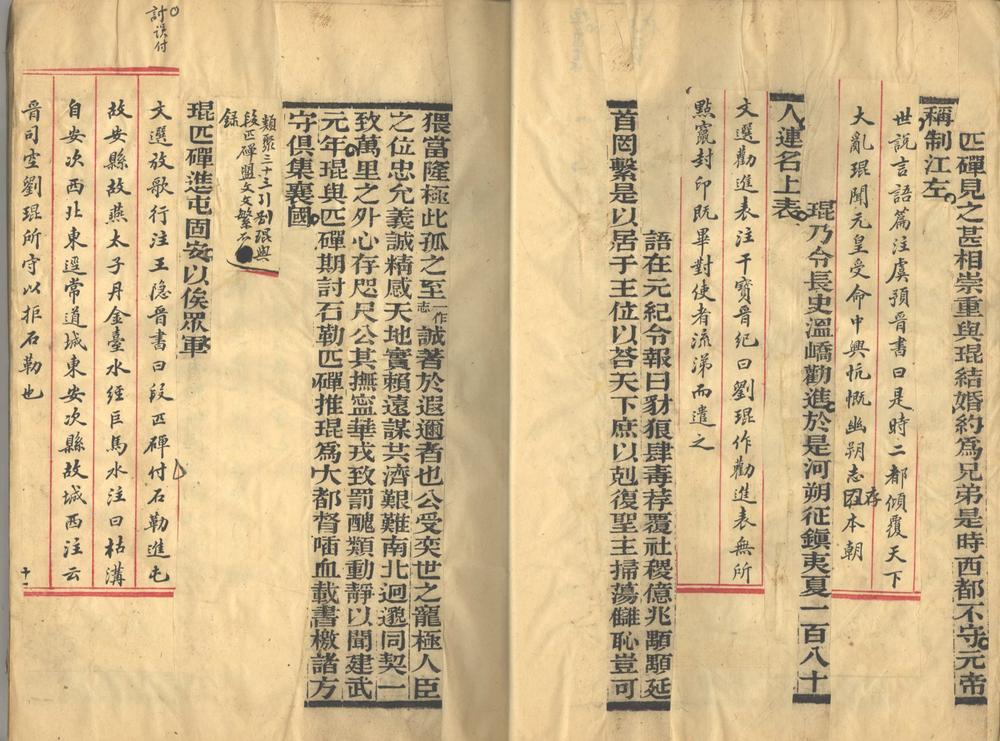 匹磾見之甚相崇重與琨結婚約爲兄弟是時西都不守元帝
稱制江左
世說言語篇注虞預晉書曰是時二都傾覆天下
大亂琨聞元皇受命中興忼慨幽朔志存本朝
琨乃令長史溫嶠勸進於是河朔征鎭夷夏一百八十
人連名上表
文選勸進表注干寶晉紀曰劉琨作勸進表無所
點竄封印既畢對使者流涕而遣之
語在元紀令報曰豺狼肆毒荐覆社稷億兆顒顒延
首罔繫是以居于王位以荅天下庶以剋復聖主掃蕩讎恥豈可
猥當隆極此孤之至一作志誠著於遐邇者也公受奕世之寵極人臣
之位忠允義誠精感天地實賴遠謀共濟艱難南北迥邈同契一
致萬里之外心存咫尺公其撫寧華戎致罰醜類動靜以聞建武
元年琨與匹磾期討石勒匹磾推琨爲大都督喢血載書檄諸方
守俱集襄國
類聚三十三引劉琨與
段匹磾盟文文繁不
錄
琨匹磾進屯固安以俟眾軍
討誤付
文選放歌行注王隐晉書曰段匹磾付石勒進屯
故安縣故燕太子丹金臺水經巨馬水注曰枯溝
自安次西北東逕常道城東安次縣故城西注云
晉司空劉琨所守以拒石勒也
十一